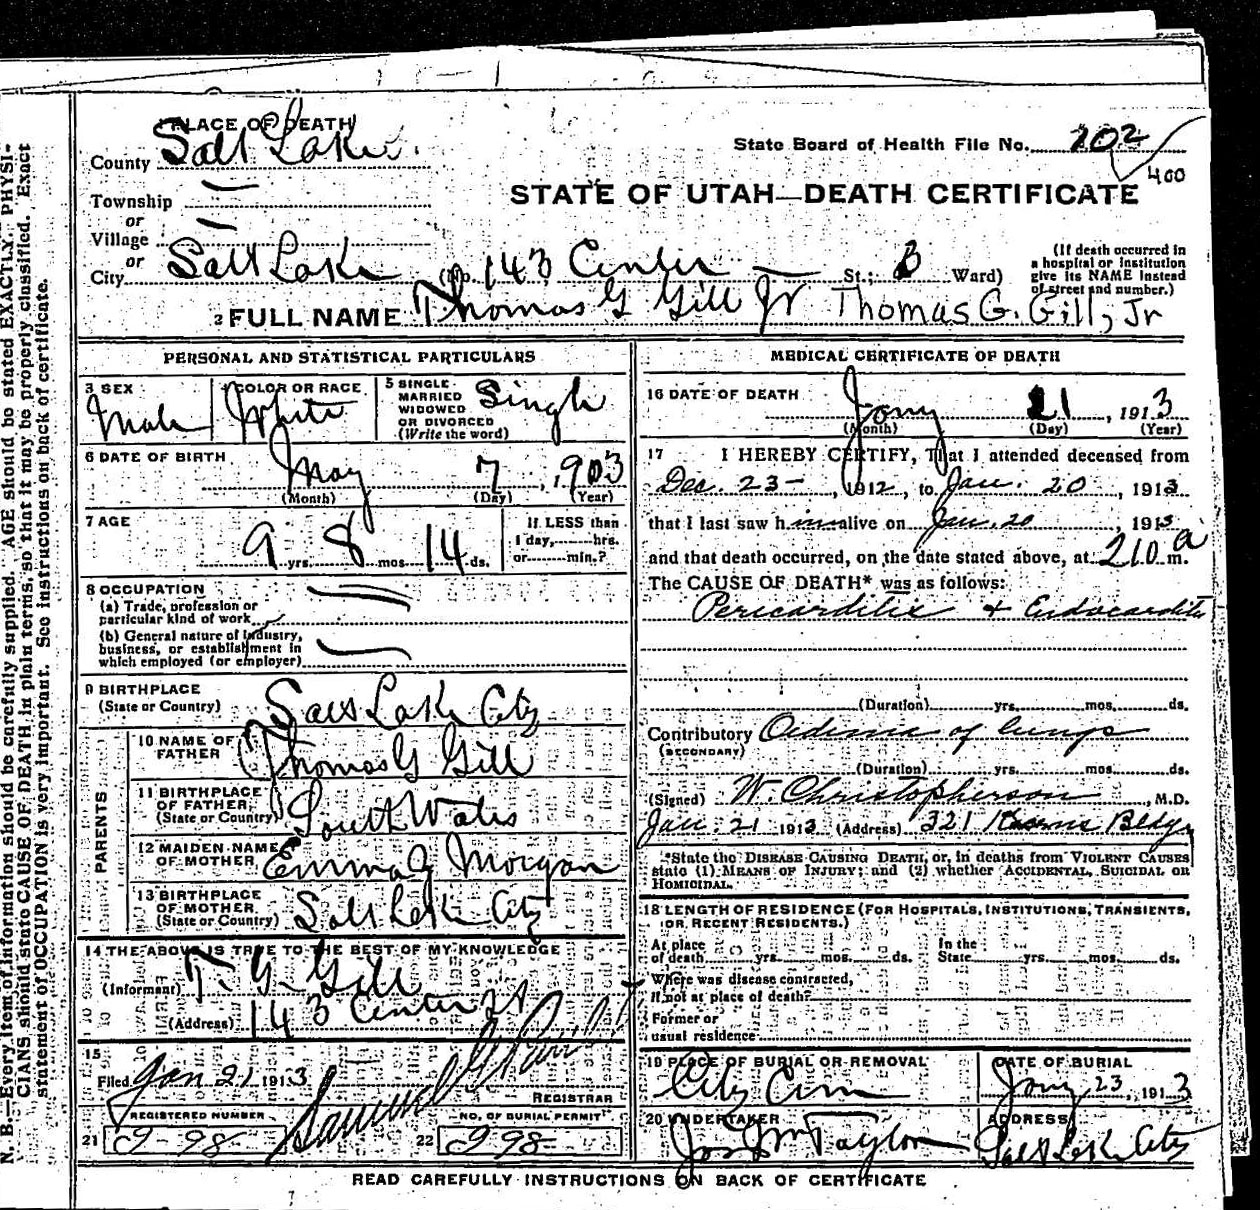 N. B.—Every item of information should be carefully supplied. AGE should be stated EXACTLY. PHYSI-
CIANS should state CAUSE OF DEATH in plain terms, so that it may be properly classified. Exact
statement of OCCUPATION is very important. See instructions on back of certificate.
PLACE OF DEATH
County Salt Lake
State Board of Health File No. 202
400
STATE OF UTAH—DEATH CERTIFICATE
Township —
or
Village —
or
City Salt Lake (No. 143 Center — St.; 3 Ward)
(If death occurred in
a hospital or institution
give its NAME instead
of street and number.)
2 FULL NAME Thomas G Gill Jr Thomas G. Gill, Jr
PERSONAL AND STATISTICAL PARTICULARS
3 SEX
Male
4 COLOR OR RACE
White
5 SINGLE
MARRIED
WIDOWED
OR DIVORCED
(Write the word)
Single
6 DATE OF BIRTH
May 7, 1903
(Month) (Day) (Year)
7 AGE
9 yrs. 8 mos. 14 ds.
If LESS than
1 day, hrs.
or min.?
8 OCCUPATION
(a) Trade, profession or
particular kind of work
(b) General nature of industry,
business, or establishment in
which employed (or employer)
9 BIRTHPLACE
(State or Country) Salt Lake City
PARENTS
10 NAME OF
FATHER Thomas G Gill
11 BIRTHPLACE
OF FATHER
(State or Country) South Wales
12 MAIDEN NAME
OF MOTHER Emma J Morgan
13 BIRTHPLACE
OF MOTHER
(State or Country) Salt Lake City
14 THE ABOVE IS TRUE TO THE BEST OF MY KNOWLEDGE
(Informant) T. G. Gill
(Address) 143 Center St
15
Filed Jan 21 1913 Samuel G
REGISTRAR
REGISTERED NUMBER
21 9-98
NO. OF BURIAL PERMIT
22 998
MEDICAL CERTIFICATE OF DEATH
16 DATE OF DEATH
Jany 21, 1913
(Month) (Day) (Year)
17 I HEREBY CERTIFY, That I attended deceased from
Dec. 23-, 1912, to Jan. 20, 1913
that I last saw him alive on Jan. 20, 1913
and that death occurred, on the date stated above, at 210 a m.
The CAUSE OF DEATH* was as follows:
Pericarditis + Endocarditis
(Duration) yrs. mos. ds.
Contributory Oedema of lungs
(SECONDARY)
(Duration) yrs. mos. ds.
(Signed) W. Christopherson, M.D.
Jan. 21 1913 (Address) 321 Kearns Bldg
*State the DISEASE CAUSING DEATH, or, in deaths from VIOLENT CAUSES
state (1) MEANS OF INJURY; and (2) whether ACCIDENTAL, SUICIDAL OR
HOMICIDAL.
18 LENGTH OF RESIDENCE (FOR HOSPITALS, INSTITUTIONS, TRANSIENTS,
OR RECENT RESIDENTS.)
At place
of death yrs. mos. ds.
In the
State yrs. mos. ds.
Where was disease contracted,
if not at place of death?
Former or
usual residence
19 PLACE OF BURIAL OR REMOVAL
City Cem
DATE OF BURIAL
Jany 23, 1913
20 UNDERTAKER
Jos Wm Taylor
ADDRESS
Salt Lake City
READ CAREFULLY INSTRUCTIONS ON BACK OF CERTIFICATE